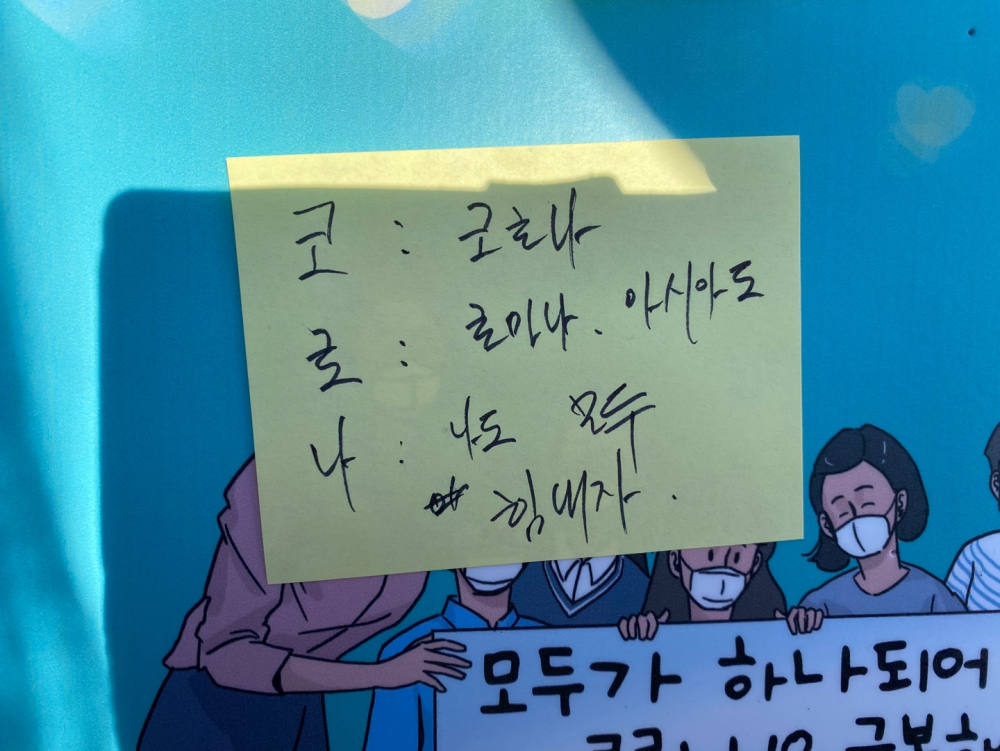 코 : 코로나
로 : 로마나. 아시아도
나 : 나도 모두
힘내자.
모두가 하나되어